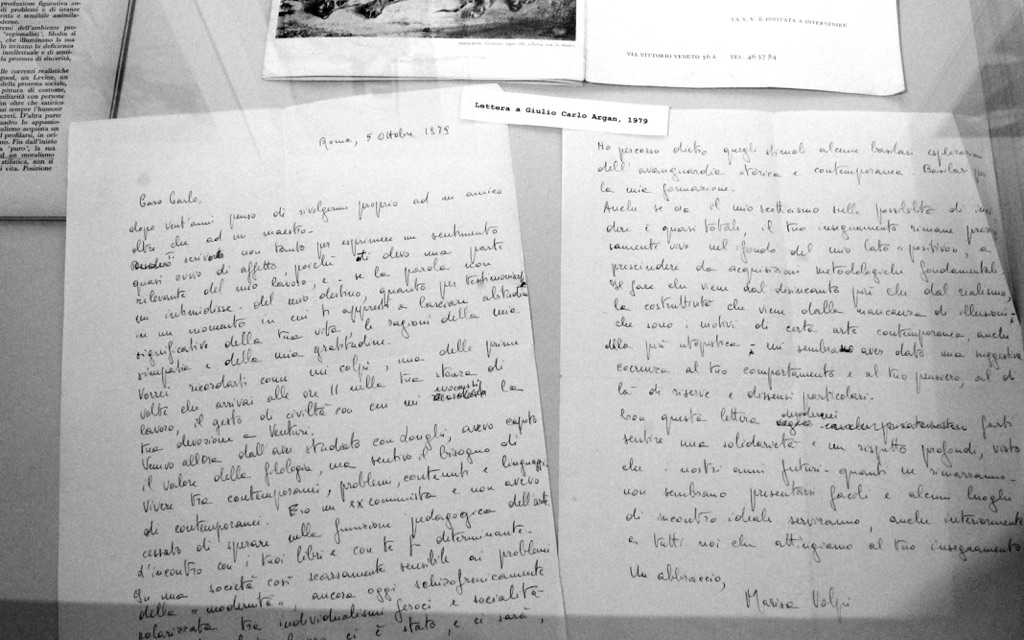 produzione figurativa au-
di problemi e di istanze
enta e sensibile assimila-
derne.
remi dell'ambiente pro-
'regionalist', Shahn si
, che illuminano la sua
lo irritano la deficienza
intellettuale e di senti-
la protesta di sincerità,
elle correnti realistiche
good, un Levine, un
della protesta sociale,
pittura di costume,
miliarità con persone
hn oltre che satirico
asi sempre l'humour
creti. D'altra parte
uadro. Io appassio-
alismo acquista un
profilarsi, in ori-
Fin dall'inizio
'puro', la sua
ad un moralismo
stilistica, non si
i vita. Posizione
LA S. V. È INVITATA A INTERVENIRE
VIA VITTORIO VENETO 56 A TEL. 46 57 84
Lettera a Giulio Carlo Argan, 1979
Roma, 5 ottobre 1979
Caro Carlo,
dopo vent'anni penso di rivolgermi proprio ad un amico
oltre che ad un maestro.
scriverti non tanto per esprimere un sentimento
quasi ovvio di affetto, poiché ti devo una parte
rilevante del mio lavoro, e - se la parola non
mi intimidisse - del mio destino, quanto per testimoniarti
in un momento in cui ti appresti a lasciare abitudini
significative della tua vita, le ragioni della mia
simpatia e della mia gratitudine.
Vorrei ricordarti come mi colpì, una delle prime
volte che arrivai alle ore 11 nella tua stanza di
lavoro, il gesto di civiltà con cui mi evocasti la
tua devozione a Venturi.
Venivo allora dall'aver studiato con Longhi, avevo capito
il valore della filologia, ma sentivo il bisogno di
vivere tra contemporanei, problemi, contenuti e linguaggi
di contemporanei. Ero un ex comunista e non avevo
cessato di sperare nella funzione pedagogica dell'arte.
L'incontro con i tuoi libri e con te fu determinante.
In una società così scarsamente sensibile ai problemi
della "modernità", ancora oggi schizofrenicamente
polarizzata tra individualismi feroci e socialità
ci è stato, e ci sarà,
Ho percorso dietro quegli stimoli alcune basilari esplorazioni
dell'avanguardia storica e contemporanea. Basilari per
la mia formazione.
Anche se ora il mio scetticismo sulle possibilità di inci
dere è quasi totale, il tuo insegnamento rimane preci
samente vivo nel fondo del mio lato "positivo", a
prescindere da acquisizioni metodologiche fondamentali.
Il fare che viene dal disincanto più che dal realismo,
la costruttività che viene dalla mancanza di illusioni -
che sono i motivi di certa arte contemporanea, anche
della più utopistica - mi sembrano aver dato una suggestiva
coerenza al tuo comportamento e al tuo pensiero, al di
là di riserve e dissensi particolari.
Con questa lettera desidererei farti
sentire una solidarietà e un rispetto profondi, visto
che i nostri anni futuri - quanti ne rimarranno -
non sembrano presentarsi facili e alcuni luoghi
di incontro ideale serviranno, anche interiormente
a tutti noi che attingiamo al tuo insegnamento.
Un abbraccio,
Marisa Volpi